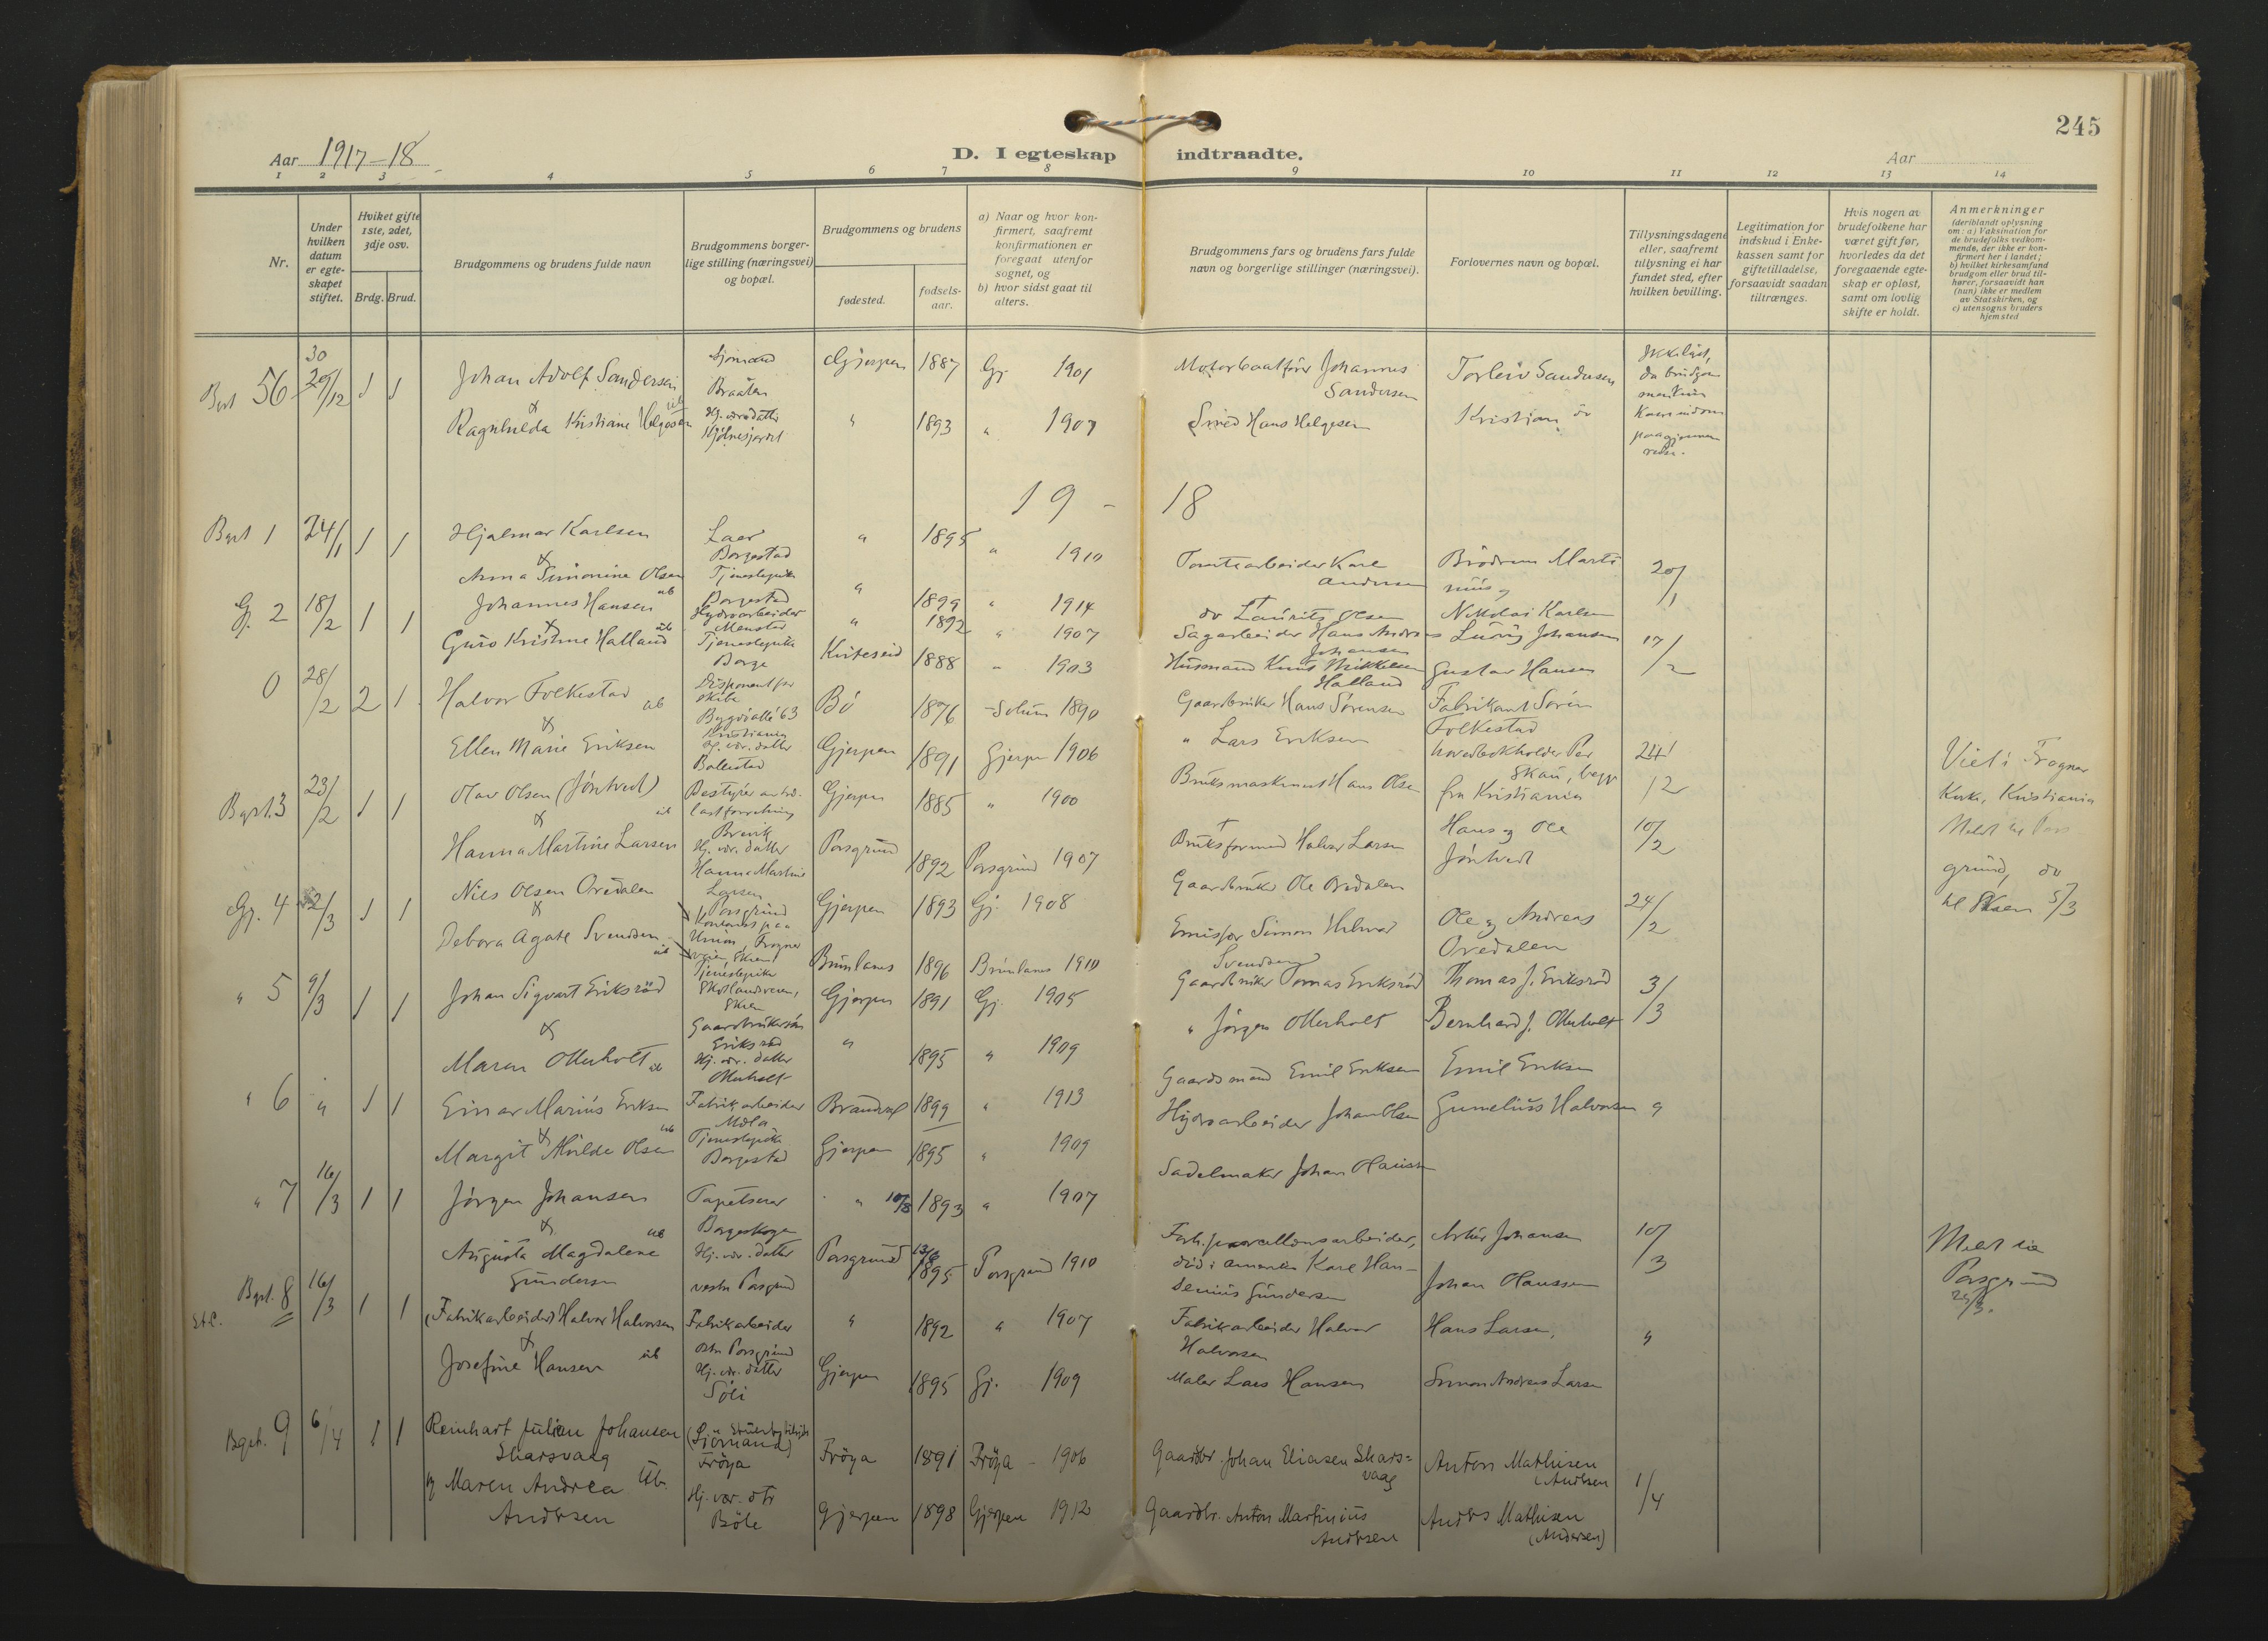 245
Aar 1917-18
D. I egteskap indtraadte.
Aar
1 2 3 4 5 6 7 8 9 10 11 12 13 14
Nr.
Under hvilken datum er egteskapet stiftet.
Hviket gifte 1ste, 2det, 3dje osv.
Brdg. Brud.
Brudgommens og brudens fulde navn
Brudgommens borgerlige stilling (næringsvei) og bopæl.
Brudgommens og brudens
fødested.
fødselsaar.
a) Naar og hvor konfirmert, saafremt konfirmationen er foregaat utenfor sognet, og
b) hvor sidst gaat til alters.
Brudgommens fars og brudens fars fulde navn og borgerlige stillinger (næringsvei).
Forlovernes navn og bopæl.
Tillysningsdagene eller, saafremt tillysning ei har fundet sted, efter hvilken bevilling.
Legitimation for indskud i Enkekassen samt for giftetilladelse, forsaavidt saadan tiltrænges.
Hvis nogen av brudefolkene har været gift før, hvorledes da det foregaaende egteskap er opløst, samt om lovlig skifte er holdt.
Anmerkninger (deriblandt oplysning om: a) Vaksination for de brudefolks vedkommende, der ikke er konfirmert her i landet; b) hvilket kirkesamfund brudgom eller brud tilhører, forsaavidt han (hun) ikke er medlem av Statskirken, og c) utensogns bruders hjemsted
56 30/12 1 1 Johan Adolf Sandersen Sjømand Braaten Gjerpen 1887 Gj. 1901 Motorbaatfører Johannes Sandersen Torleiv Sandersen
Ragnhilda Kristiane Helgesen Hj. vær. datter " 1893 " 1907 Smed Hans Helgesen Kristian do
19-18
Bgst 1 24/1 1 1 Hjalmar Karlsen Laer Borgestad " 1895 " 1910 Tomtearbeider Karl Andersen Brødrene Martinius og 20/1
Anna Simonine Olsen Tjenestepike Borgestad " 1899 " 1914 do Laurits Olsen Nikolai Karlsen
Gj. 2 18/2 1 1 Johannes Hansen ub Hydroarbeider Menstad " 1892 " 1907 Sagarbeider Hans Andreas Johansen Ludvig Johansen 17/2
Guro Kristine Halland Tjenestepike Borge Kviteseid 1888 " 1903 Husmand Knut Mikkelsen Halland Gustav Hansen
0 28/2 2 1 Halvor Folkestad ub Disponent for skibe Bygdøallé 63 Kristiania Bø 1876 Solum 1890 Gaardbruker Hans Sørensen Fabrikant Søren Folkestad
Ellen Marie Eriksen Hj. vær. datter Bøllestad Gjerpen 1891 Gjerpen 1906 " Lars Eriksen hovedbokholder Per Skau, begge fra Kristiania 24/2 Viet i Frogner Kirke, Kristiania
Bgst. 3 23/2 1 1 Olav Olsen (Jøntvedt) ub Brevik Gjerpen 1885 " 1900 Bruksmaskinist Hans Olsen Hans og Ole Jøntvedt 10/2 Meldt til Porsgrund, do til Skien 5/3
Hanna Martine Larsen Hj. vær. datter Hanna Martine Larsen Porsgrund Porsgrund 1892 Porsgrund 1907 Bruksformand Halvor Larsen
Gj. 4 2/3 1 1 Nils Olsen Øvedalen Gjerpen 1893 Gj. 1908 Gaardbruker Ole Øvedalen Ole og Andreas Øvedalen 24/2
Debora Agate Svendsen ub Tjenestepike Skotlandsveien, Skien Brunlanes 1896 Brunlanes 1910 Simon Hilmar Svendsen
" 5 9/3 1 1 Johan Sigvart Eriksrød Gaardbrukersøn Eriksrød Gjerpen 1891 Gj. 1905 Gaardbruker Tomas Eriksrød Thomas J. Eriksrød 3/3
Maren Otterholt ub Hj. vær. datter Otterholt " 1895 " 1909 " Jørgen Otterholt Bernhard J. Otterholt
" 6 " 1 1 Einar Marius Eriksen ub Fabrikarbeider Mæla Brandval 1899 " 1913 Gaardsmand Emil Eriksen Emil Eriksen
Margit Alvilde Olsen Tjenestepike Borgestad Gjerpen 1895 " 1909 Hydroarbeider Johan Olsen Gunelius Halvorsen "
" 7 16/3 1 1 Jørgen Johansen ub Tapetserer Borgeskogen " 10/8 1893 " 1907 Sadelmaker Johan Olaussen Artur Johansen 10/3 Meldt til Porsgrund 25/3.
Augusta Magdalene Gundersen Hj. vær. datter vestre Porsgrund Porsgrund 13/6 1895 Porsgrund 1910 Forh. porcellænsarbeider, død i Amerika Karl Handenius Gundersen Johan Olaussen
Bgst. 8 16/3 1 1 (Fabrikarbeider) Halvor Halvorsen Fabrikarbeider østre Porsgrund " 1892 " 1907 Fabrikarbeider Halvor Halvorsen Hans Larsen, "
Josefine Hansen ub Hj. vær. datter Søli Gjerpen 1895 Gj. 1909 Maler Lars Hansen Simon Andreas Larsen
Bgst. 9 6/4 1 1 Reinhart Julian Johansen Skarsvaag (Sjømand) Frøya Frøya 1891 Frøya - 1906 Gaardbr. Johan Eliasen Skarsvaag Anton Mathisen (Andersen) 1/4
og Maren Andrea Andersen Ub. Hj. vær. dtr Bøle Gjerpen 1898 Gjerpen 1912 Gaardbr. Anton Martinius Andersen Anders Mathisen (Andersen)